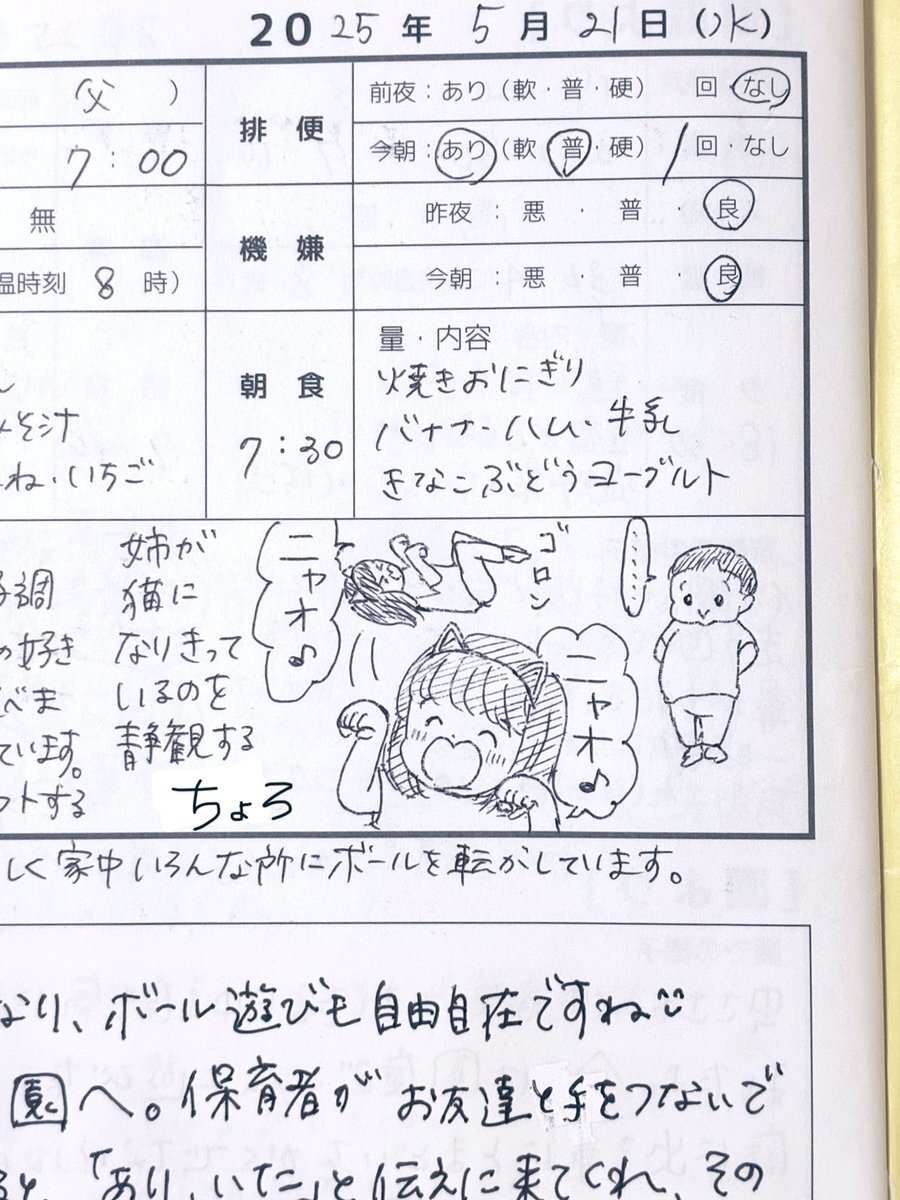 2025年5月21日(水)
(父)
7:00
排便
前夜:あり(軟・普・硬) 回・なし
今朝:あり(軟・普・硬) 1回・なし
無
温時刻 8 時)
機嫌
昨夜:悪・普・良
今朝:悪・普・良
みそ汁
ね・いちご
朝食
7:30
量・内容
焼きおにぎり
バナナ・ハム・牛乳
きなこぶどうヨーグルト
調
の好き
べま
ています。
トする
姉が
猫に
なりきって
いるのを
静観する
ちょろ
ニャオ♪
ゴロン
ニャオ♪
……
しく家中いろんな所にボールを転がしています。
なり、ボール遊びも自由自在ですね
園へ。保育者がお友達と手をつないで
と、「あり、いた」と伝えに来てくれ、その